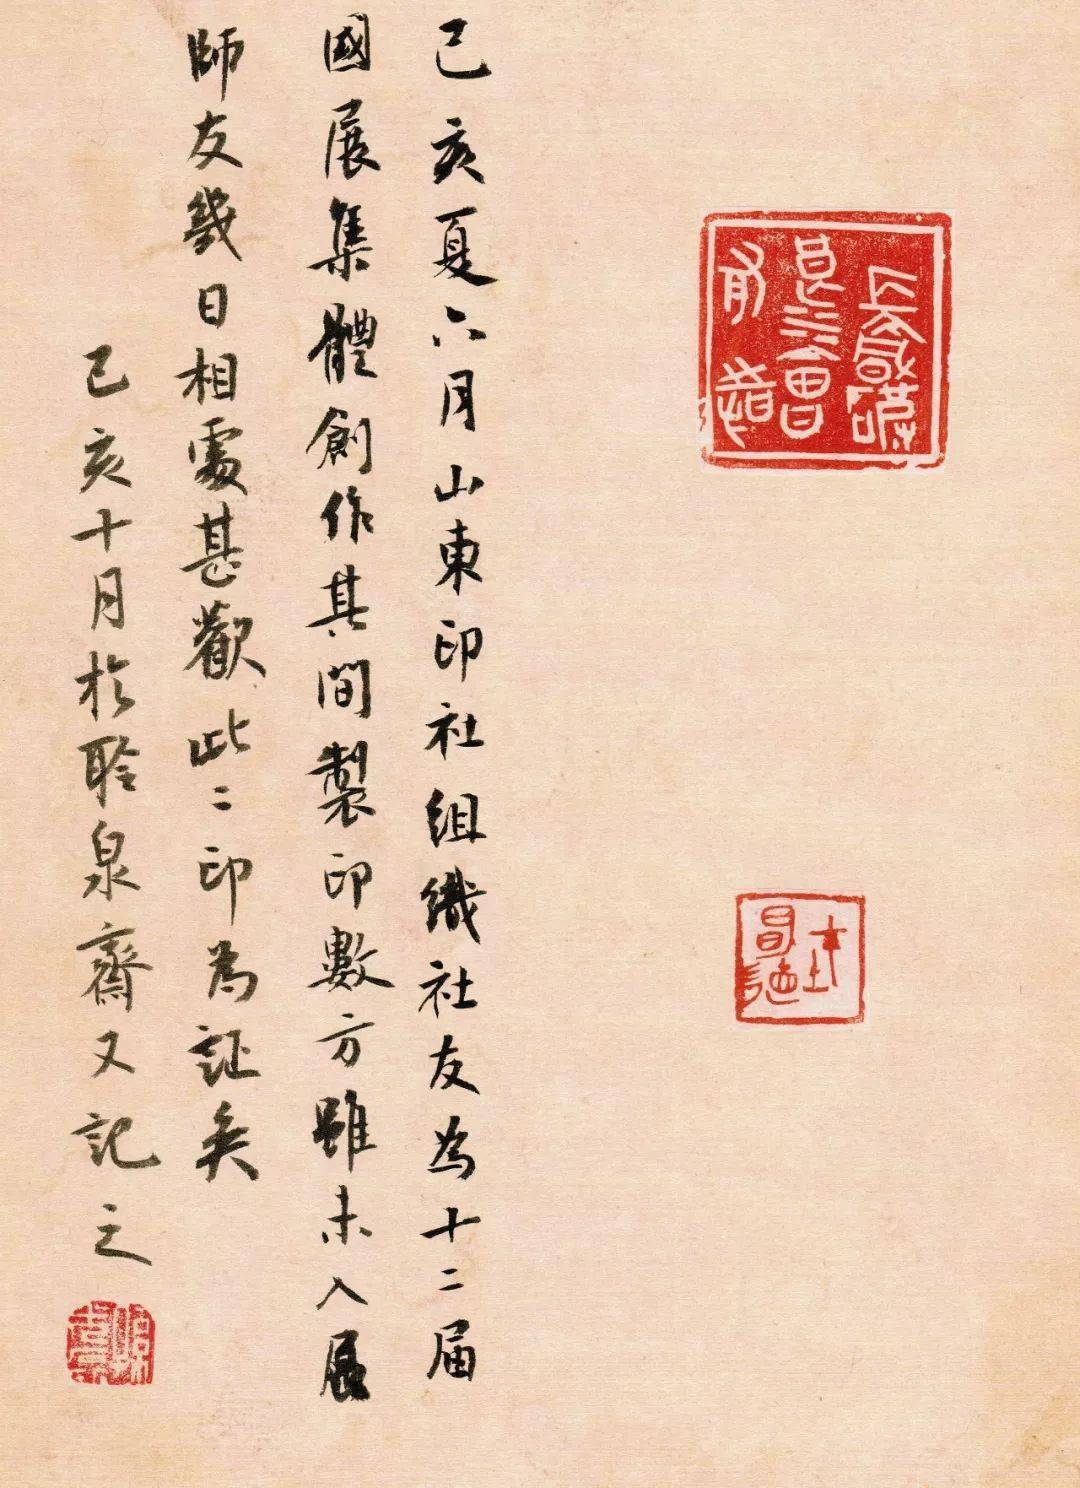 己亥夏六月山東印社組織社友為十二届
國展集體創作其間製印數方雖未入展
師友幾日相處甚歡此二印為証矣
己亥十月於聆泉齋又記之